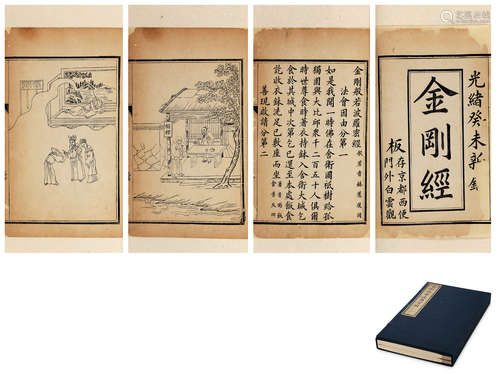 金剛般若波羅密經
法會因由分第一
如是我聞一時佛在舍衛國祇樹給孤
獨園與大比邱衆千二百五十人俱爾
時世尊食時著衣持鉢入舍衛大城乞
食於其城中次第乞已還至本處飯食
訖收衣鉢洗足已敷座而坐
善現啟請分第二
光緒癸未新
金剛經
板存京都西便
門外白雲觀